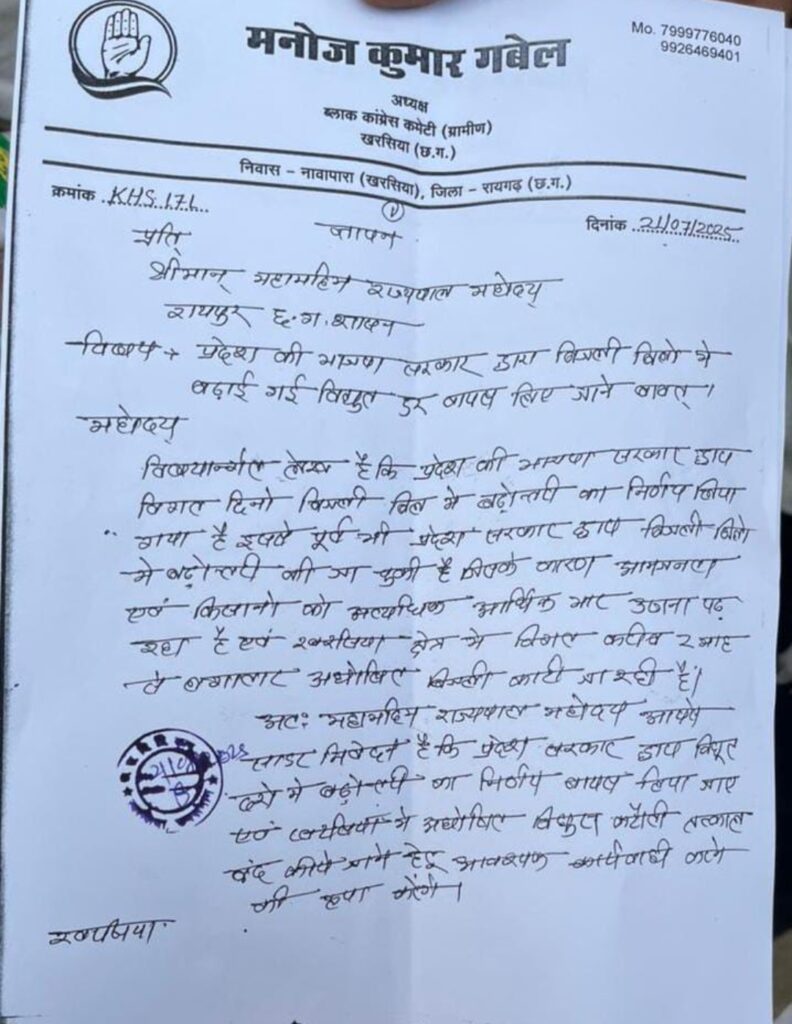 मनोज कुमार गबेल
Mo. 7999776040
9926469401
अध्यक्ष
ब्लाक कांग्रेस कमेटी (ग्रामीण)
खरसिया (छ.ग.)
निवास - नावापारा (खरसिया), जिला - रायगढ़ (छ.ग.)
क्रमांक KHS 171
दिनांक 21/07/2025
प्रति ज्ञापन
श्रीमान् महामहिम राज्यपाल महोदय
रायपुर छ.ग. शासन
विषय → प्रदेश की भाजपा सरकार द्वारा बिजली बिलो मे
बढ़ाई गई विद्युत दर वापस लिए जाने बाबत्।
महोदय
विषयान्तर्गत लेख है कि प्रदेश की भाजपा सरकार द्वारा
विगत दिनो बिजली बिल मे बढ़ोत्तरी का निर्णय लिया
गया है इसके पूर्व भी प्रदेश सरकार द्वारा बिजली बिलो
मे बढ़ोत्तरी की जा चुकी है जिसके कारण आमजनता
एवं किसानो को अत्यधिक आर्थिक भार उठाना पढ़
रहा है एवं खरसिया क्षेत्र मे विगत करीब 2 माह
से लगातार अघोषित बिजली काटी जा रही है।
अतः महामहिम राज्यपाल महोदय आपसे
सादर निवेदन है कि प्रदेश सरकार द्वारा विद्युत
दरो मे बढ़ोत्तरी का निर्णय वापस लिया जाए
एवं खरसिया मे अघोषित विद्युत कटौती तत्काल
बंद कीये जाने हेतु आवश्यक कार्यवाही करने
की कृपा करेंगे।
खरसिया